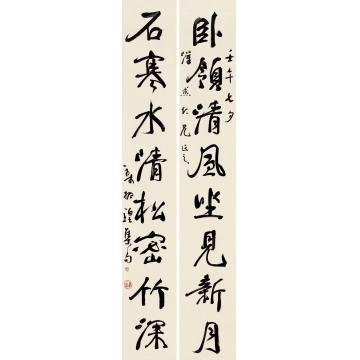 壬午七夕
臥領清風坐見新月
石寒水清松密竹深
集句